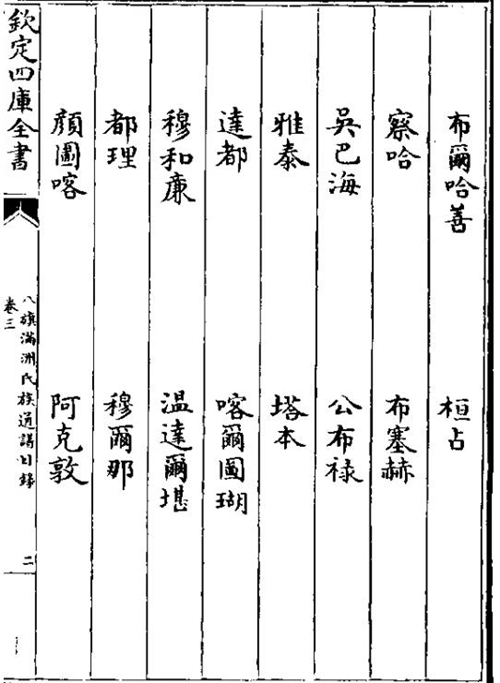 布爾哈善　桓占
察哈　布塞赫
吳巴海　公布祿
雅泰　塔本
達都　喀爾圖瑚
穆和廉　温達爾堪
都理　穆爾那
顔圖喀　阿克敦
欽定四庫全書
八旗滿洲氏族通譜目録
卷三
二